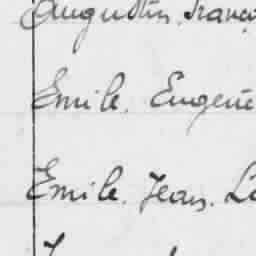 Augustin, Franço
Emile. Eugène
Emile. Jean. Lo